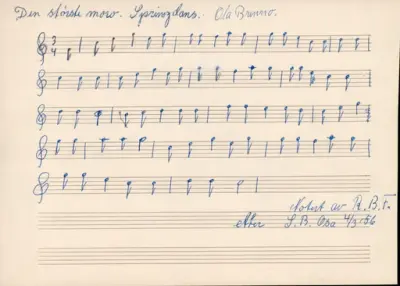 Den största moro. Springdans. Ola Brenno.
3
4
Notert av R. B. F.
etter S. B. Osa 4/3-56